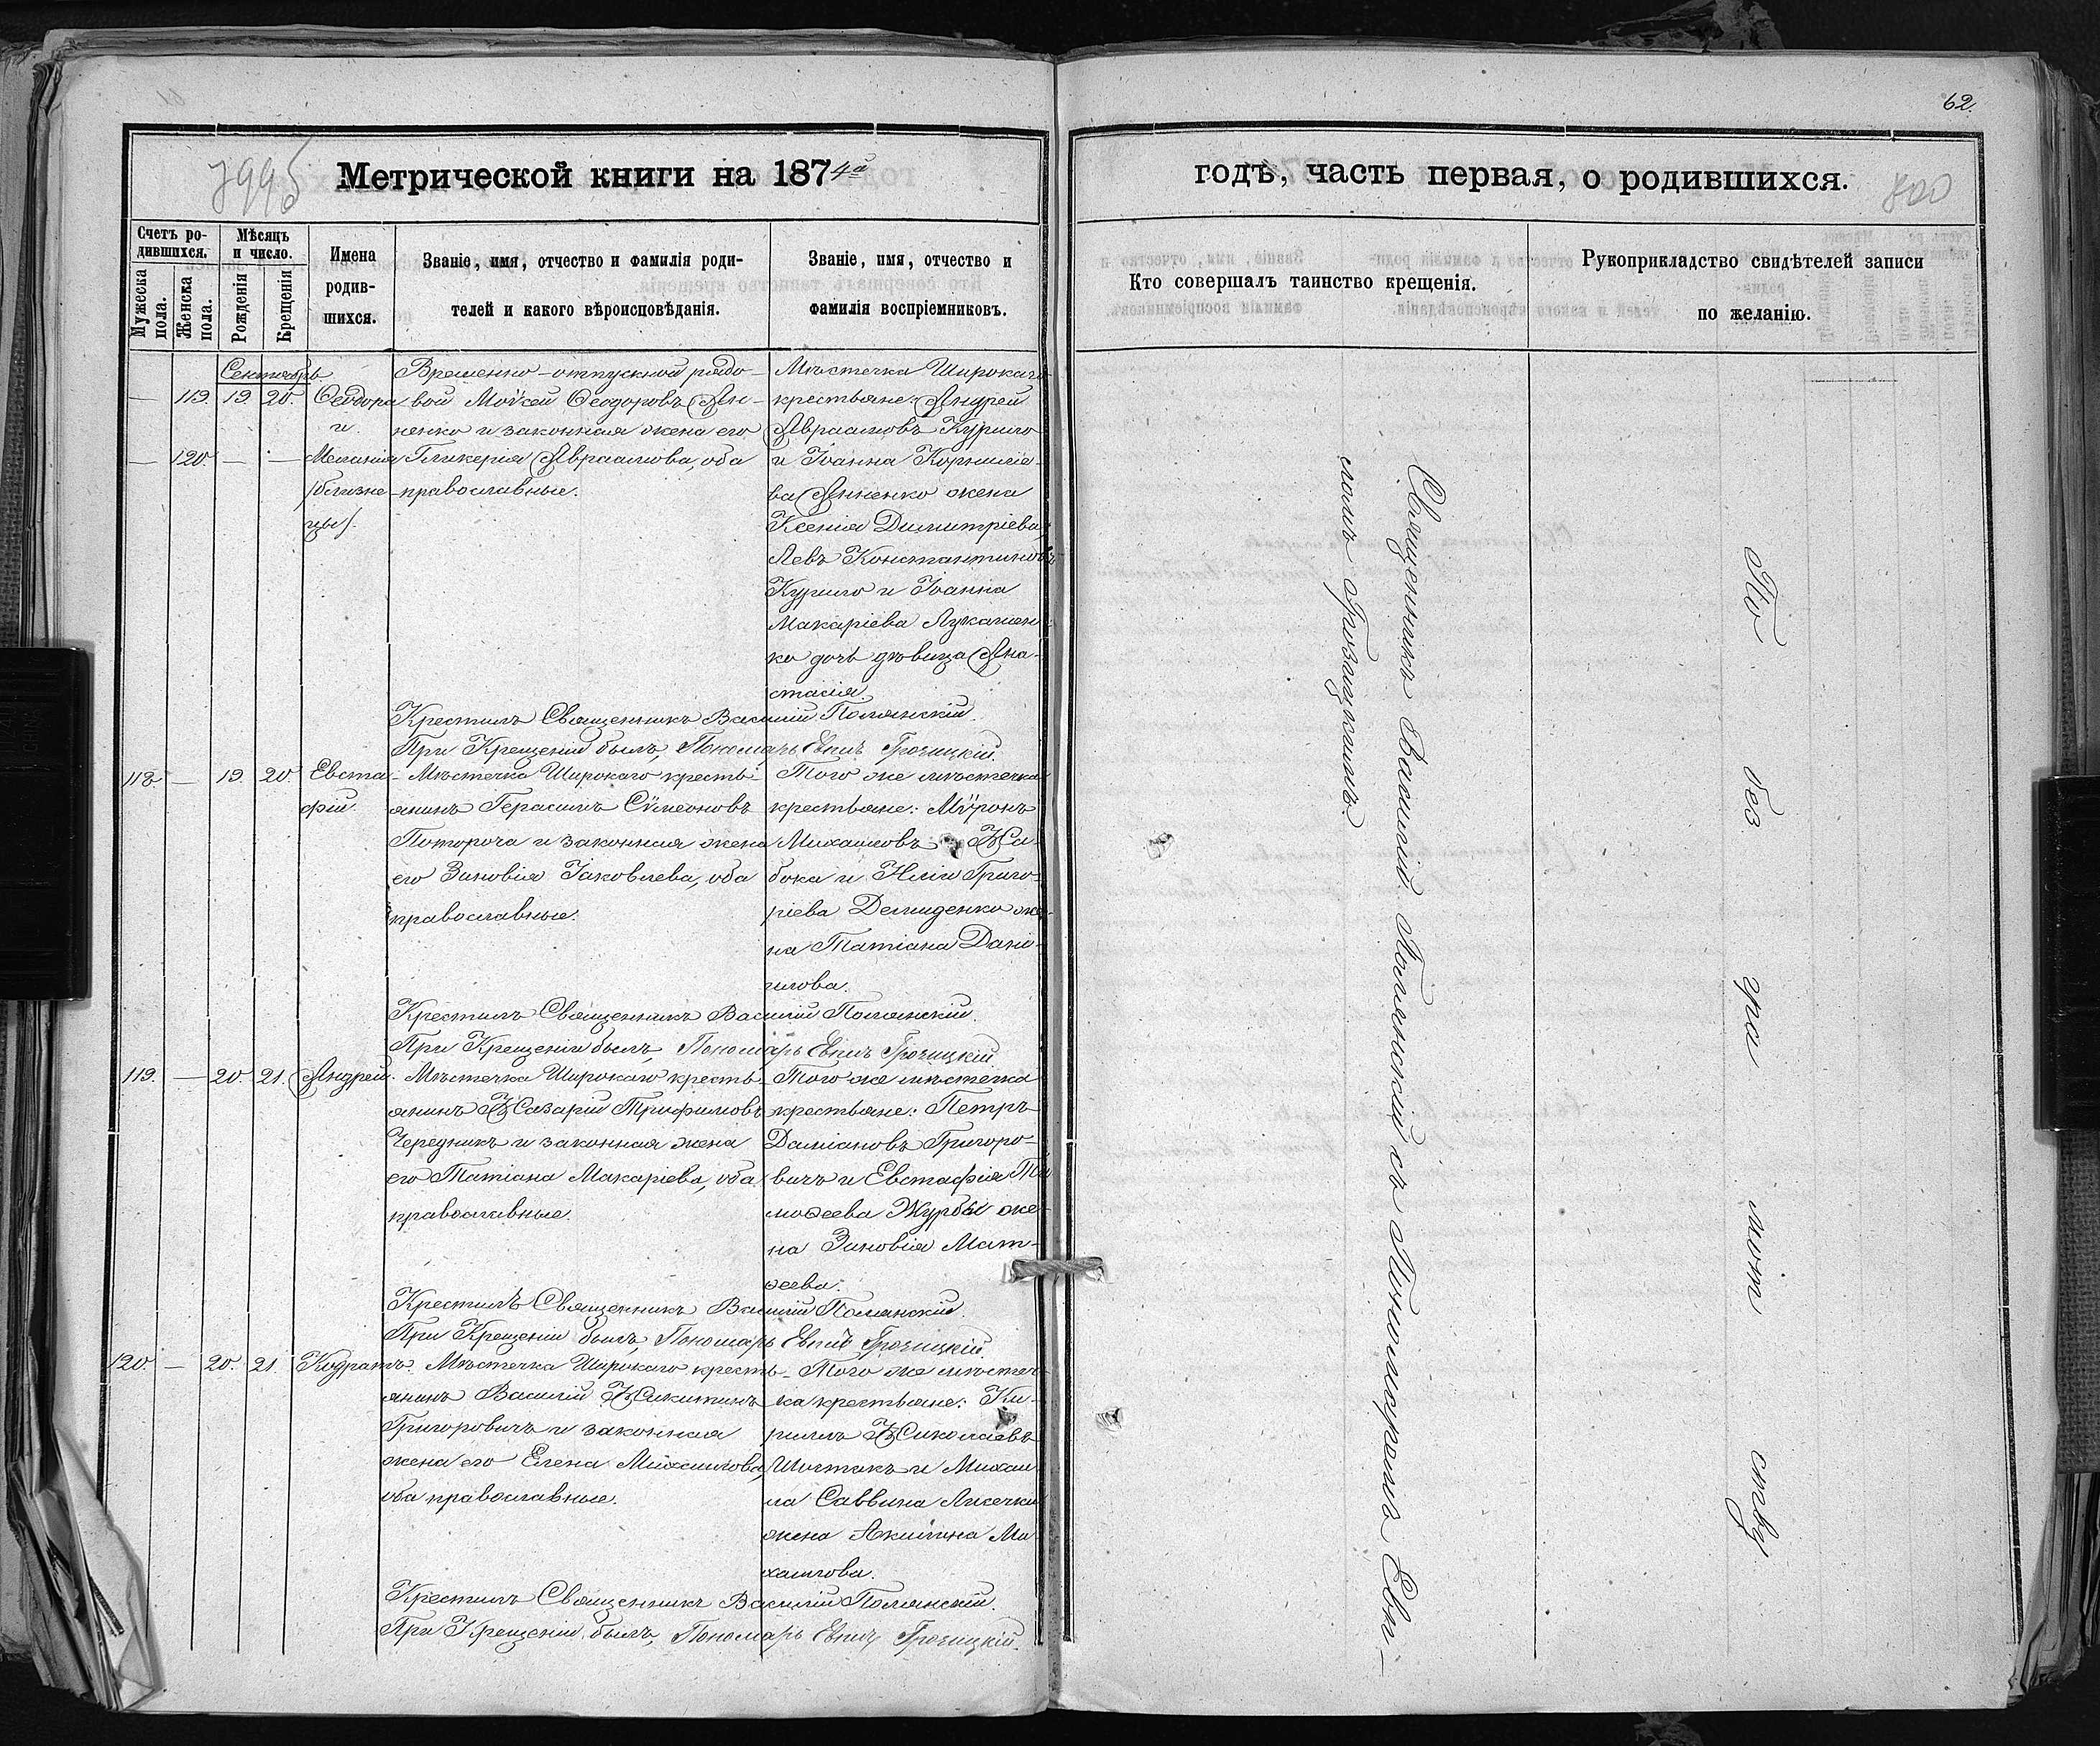 62.
799
Метрической книги на 1874й
годѣ, часть первая, о родившихся.
800
Счетъ ро-
дившихся.
Мужеска пола.
Женска пола.
Мѣсяцъ
и число.
Рожденія
Крещенія
Имена
родив-
шихся.
Званіе, имя, отчество и фамилія роди-
телей и какого вѣроисповѣданія.
Званіе, имя, отчество и
фамилія воспріемниковъ.
Кто совершалъ таинство крещенія.
Рукоприкладство свидѣтелей записи
по желанію.
Сентябрь
— 119. 19. 20. Ѳеодора
и
— 120. — — Меланія
/близне-
цы/.
Временно-отпускной рядо-
вой Моѵсей Ѳеодоровъ Ан-
ненко и законная жена его
Гликерія Авраамова, оба
православные.
Мѣстечка Широкаго
крестьяне: Андрей
Авраамовъ Курило
и Іоанна Корниліе-
ва Анненко жена
Ксенія Димитріева,
Левъ Константиновъ
Курило и Іоанна
Макаріева Лукашен-
ко дочь дѣвица Ана-
стасія.
Крестилъ Священникъ Василій Полянскій.
При Крещеніи былъ, Пономарь Евпл Грозицкій.
118. — 19. 20. Евста-
фій.
Мѣстечка Широкаго кресть-
янинъ Герасимъ Сѵмеоновъ
Потороча и законная жена
его Зиновія Іаковлева, оба
православные.
Того же мѣстечка
крестьяне: Мѵронъ
Михаиловъ Жа-
бока и Иліи Григо-
ріева Демиденко же-
на Татіана Дані-
илова.
Крестилъ Священникъ Василій Полянскій.
При Крещеніи былъ, Пономарь Евпл Грозицкій
119. — 20. 21. Андрей.
Мѣстечка Широкаго кресть-
янинъ Назарій Трифиловъ
Чередникъ и законная жена
его Татіана Макаріева, оба
православные.
Того же мѣстечка
крестьяне: Петръ
Даміановъ Григоро-
вичъ и Евстафія Ти-
моѳеева Журбы же-
на Зиновія Мат-
ѳеева.
Крестилъ Священникъ Василій Полянскій.
При Крещеніи былъ, Пономарь Евпл Грозицкій.
120. — 20. 21. Кодратъ.
Мѣстечка Широкаго кресть-
янинъ Василій Никитинъ
Григоровичъ и законная
жена его Елена Михаилова,
оба православные.
Того же мѣстеч-
ка крестьяне: Ки-
риллъ Николаевъ
Шостакъ и Михаи-
ла Саввина
жена Акилина Ми-
хаилова.
Крестилъ Священникъ Василій Полянскій.
При Крещеніи былъ, Пономарь Евпл Грозицкій.
Священникъ Василій Полянскій съ Пономаремъ Евп-
ломъ Грозицкимъ.
По без гра мот ству